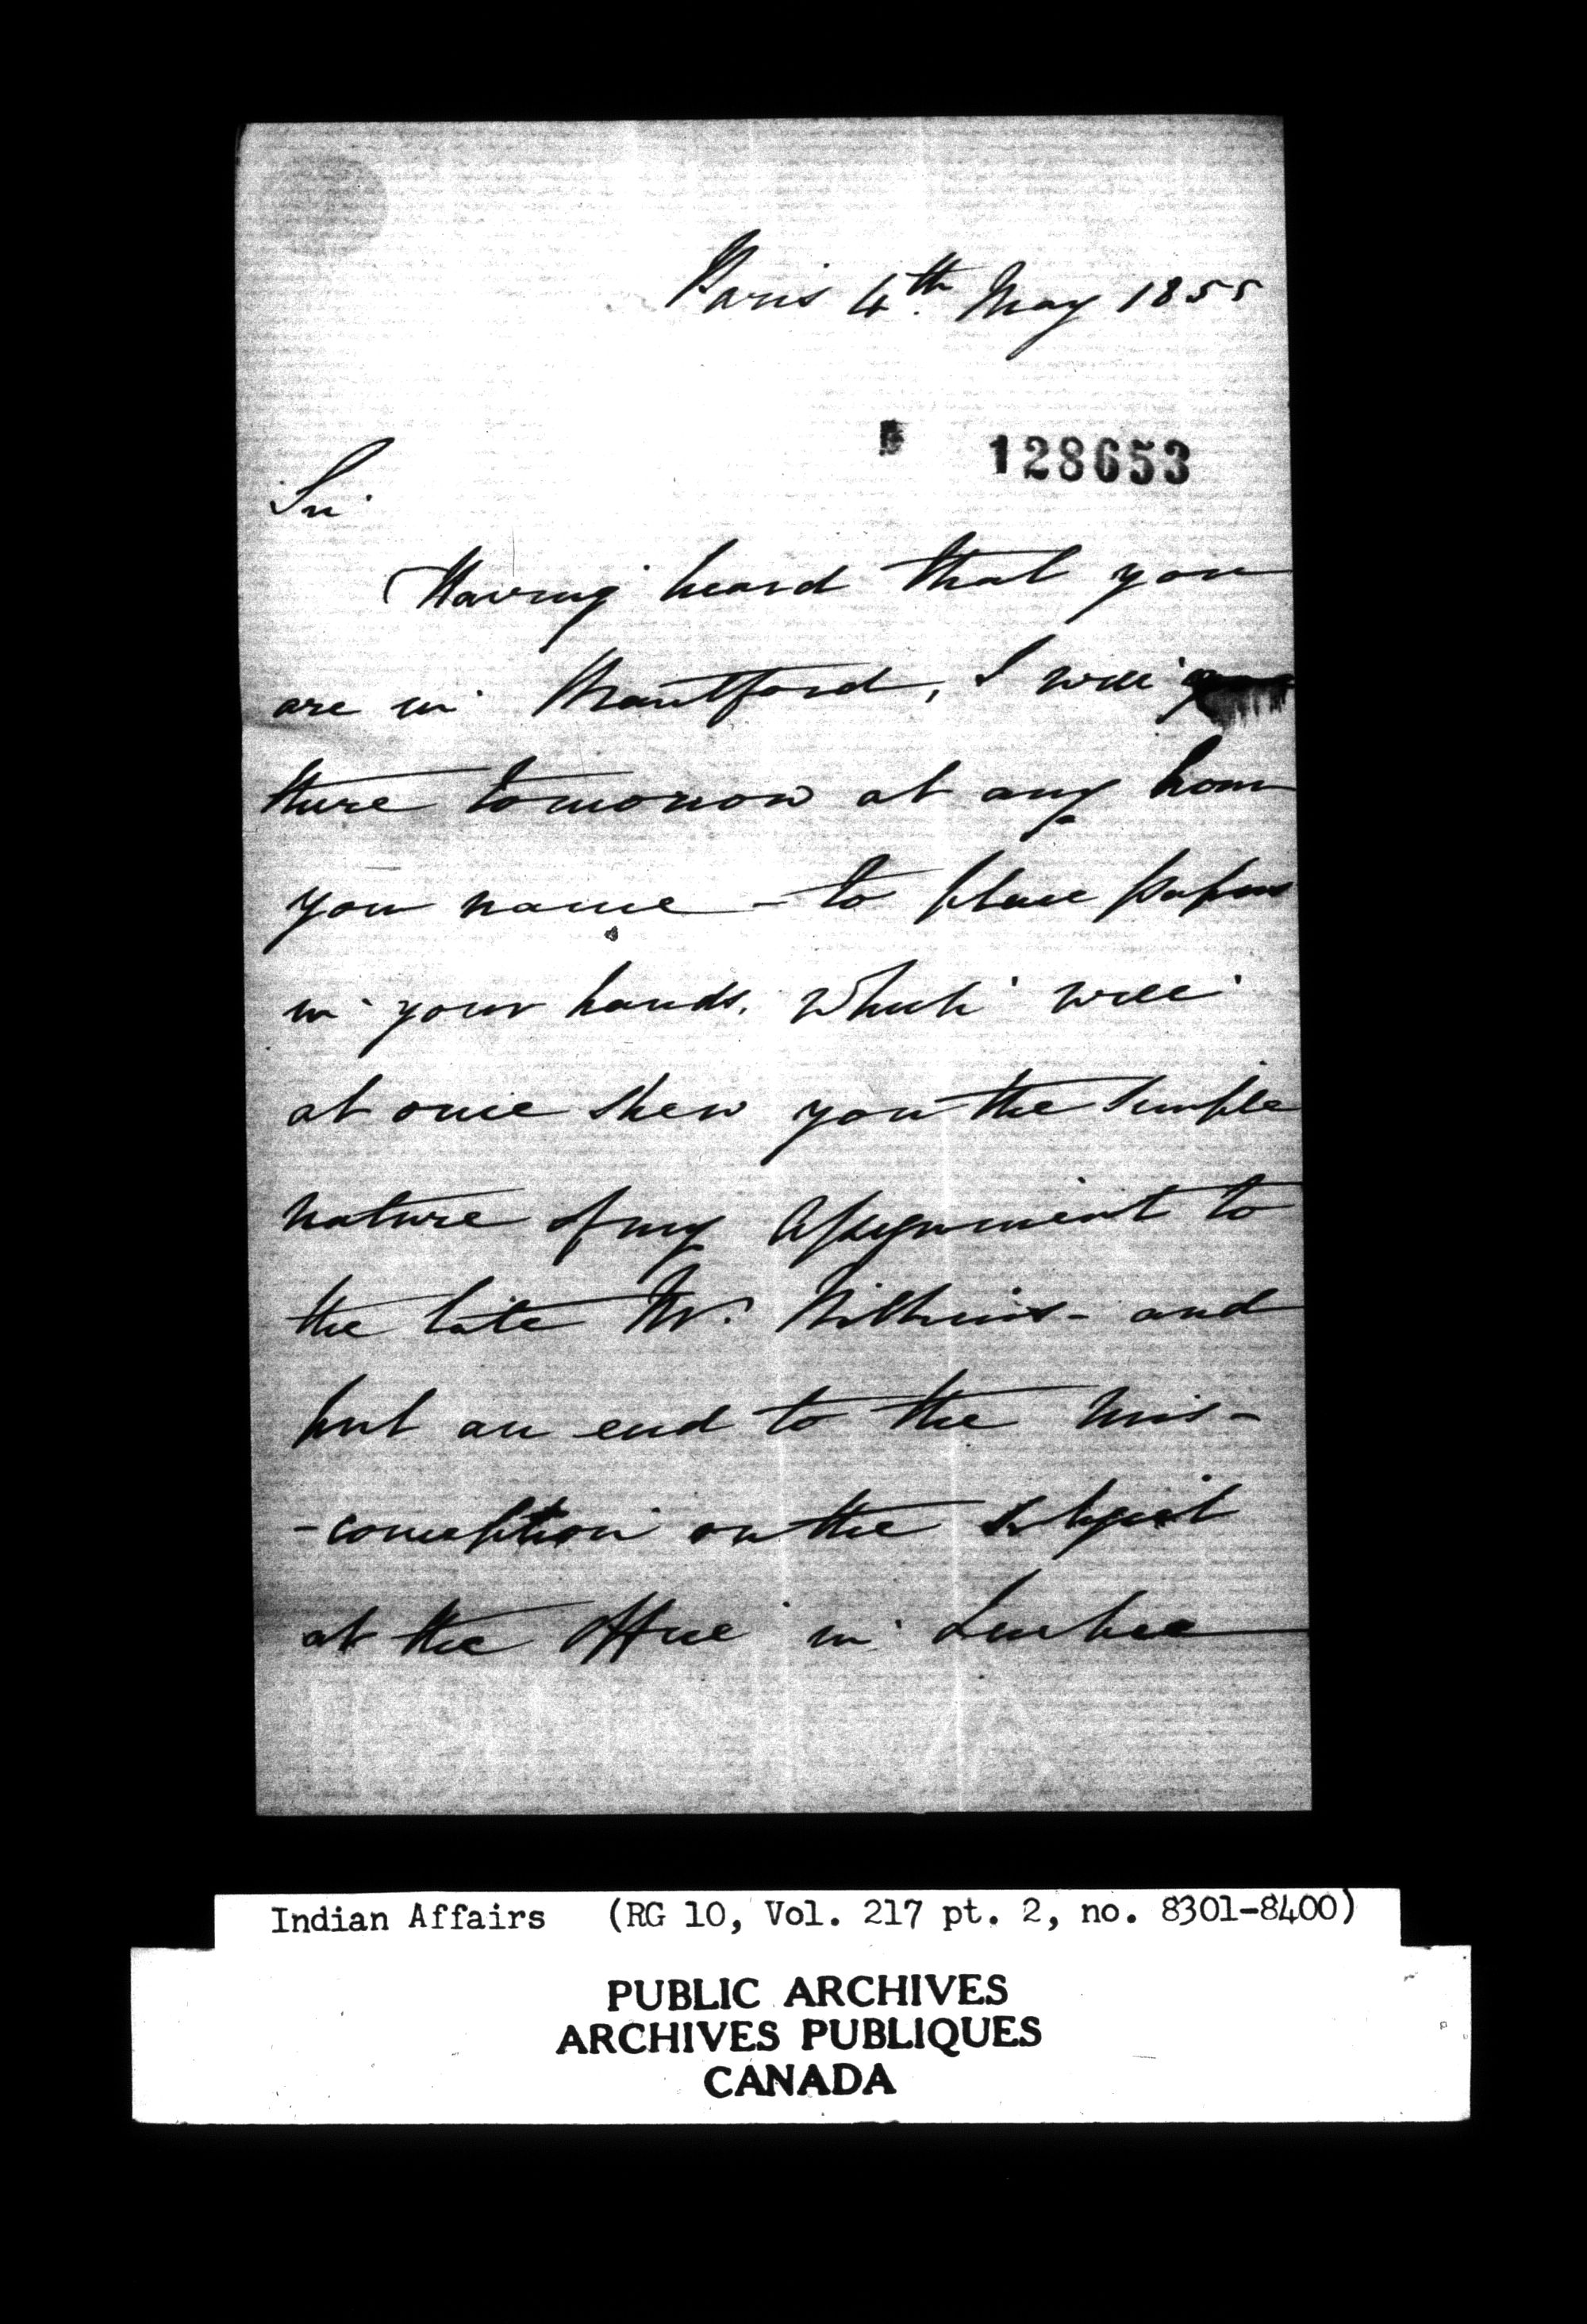 Paris 4th. May 1855
128653
Sir
Having heard that you
are in Brantford, I will
there tomorrow at any hour
you name - to place papers
in your hands. which will
at once shew you the simple
nature of my Assignment to
the late Mr. Wilkins - and
put an end to the mis-
-conception on the subject
at the Office in Quebec
Indian Affairs (RG 10, Vol. 217 pt. 2, no. 8301-8400)
PUBLIC ARCHIVES
ARCHIVES PUBLIQUES
CANADA